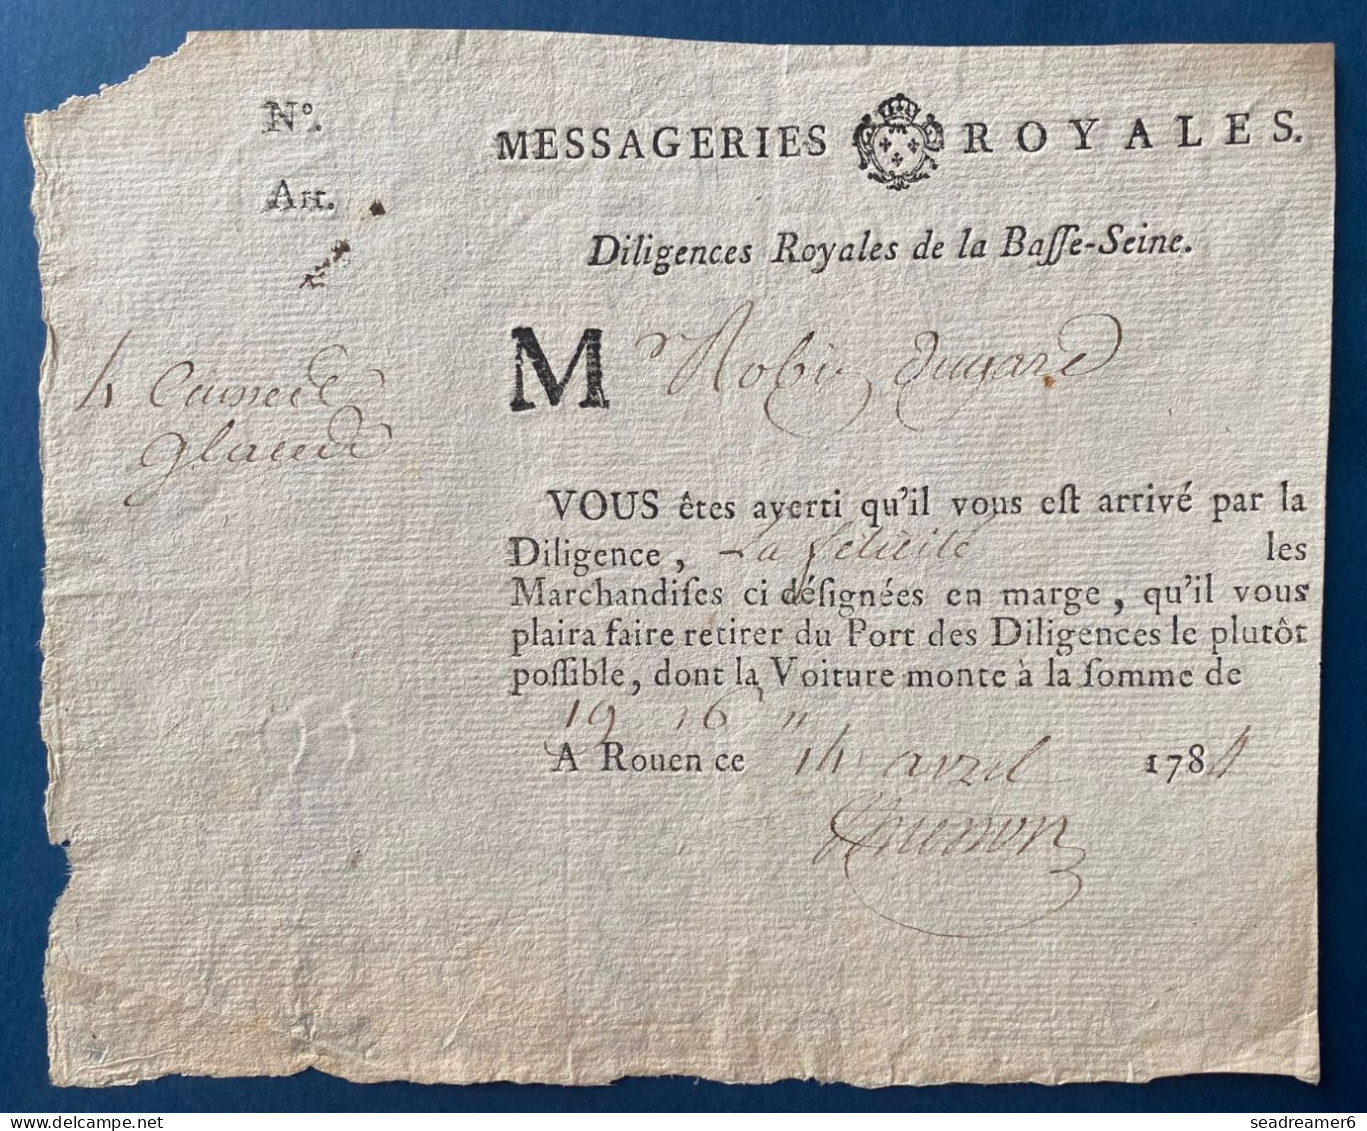 N°.
Art.
MESSAGERIES ROYALES.
Diligences Royales de la Baſſe-Seine.
M r Robin Dugard
4
VOUS êtes averti qu'il vous eſt arrivé par la
Diligence, La félicité les
Marchandiſes ci déſignées en marge, qu'il vous
plaira faire retirer du Port des Diligences le plutôt
poſſible, dont la Voiture monte à la ſomme de
19 16 "
A Rouen ce 14 avril 1784
seadreamer6